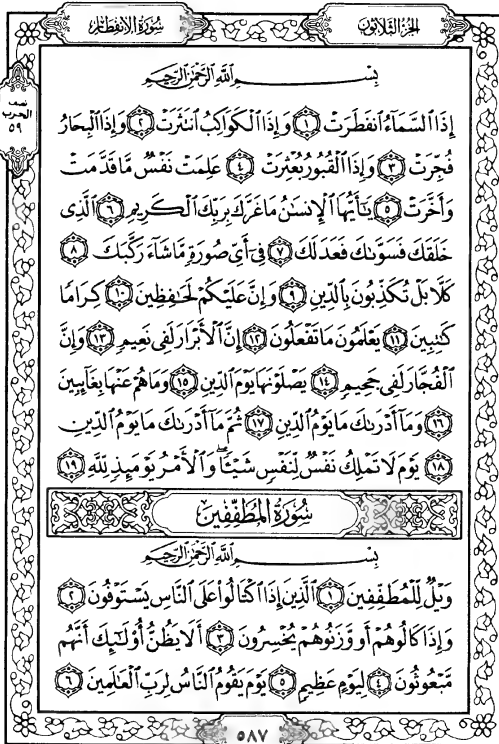 سُورَةُ الانفِطَارِ
الجُزْءُ الثَّلَاثُونَ
نصف
الحزب
٥٩
بِسْمِ اللَّهِ الرَّحْمَٰنِ الرَّحِيمِ
إِذَا السَّمَاءُ انفَطَرَتْ ١ وَإِذَا الْكَوَاكِبُ انتَثَرَتْ ٢ وَإِذَا الْبِحَارُ
فُجِّرَتْ ٣ وَإِذَا الْقُبُورُ بُعْثِرَتْ ٤ عَلِمَتْ نَفْسٌ مَّا قَدَّمَتْ
وَأَخَّرَتْ ٥ يَٰٓأَيُّهَا الْإِنسَٰنُ مَا غَرَّكَ بِرَبِّكَ الْكَرِيمِ ٦ الَّذِى
خَلَقَكَ فَسَوَّىٰكَ فَعَدَلَكَ ٧ فِىٓ أَىِّ صُورَةٍ مَّا شَآءَ رَكَّبَكَ ٨
كَلَّا بَلْ تُكَذِّبُونَ بِالدِّينِ ٩ وَإِنَّ عَلَيْكُمْ لَحَٰفِظِينَ ١٠ كِرَامًا
كَٰتِبِينَ ١١ يَعْلَمُونَ مَا تَفْعَلُونَ ١٢ إِنَّ الْأَبْرَارَ لَفِى نَعِيمٍ ١٣ وَإِنَّ
الْفُجَّارَ لَفِى جَحِيمٍ ١٤ يَصْلَوْنَهَا يَوْمَ الدِّينِ ١٥ وَمَا هُمْ عَنْهَا بِغَآئِبِينَ
١٦ وَمَآ أَدْرَىٰكَ مَا يَوْمُ الدِّينِ ١٧ ثُمَّ مَآ أَدْرَىٰكَ مَا يَوْمُ الدِّينِ
١٨ يَوْمَ لَا تَمْلِكُ نَفْسٌ لِّنَفْسٍ شَيْـًٔا ۖ وَالْأَمْرُ يَوْمَئِذٍ لِّلَّهِ ١٩
سُورَةُ الْمُطَفِّفِينَ
بِسْمِ اللَّهِ الرَّحْمَٰنِ الرَّحِيمِ
وَيْلٌ لِّلْمُطَفِّفِينَ ١ الَّذِينَ إِذَا اكْتَالُوا عَلَى النَّاسِ يَسْتَوْفُونَ ٢
وَإِذَا كَالُوهُمْ أَو وَّزَنُوهُمْ يُخْسِرُونَ ٣ أَلَا يَظُنُّ أُولَٰٓئِكَ أَنَّهُم
مَّبْعُوثُونَ ٤ لِيَوْمٍ عَظِيمٍ ٥ يَوْمَ يَقُومُ النَّاسُ لِرَبِّ الْعَٰلَمِينَ ٦
٥٨٧